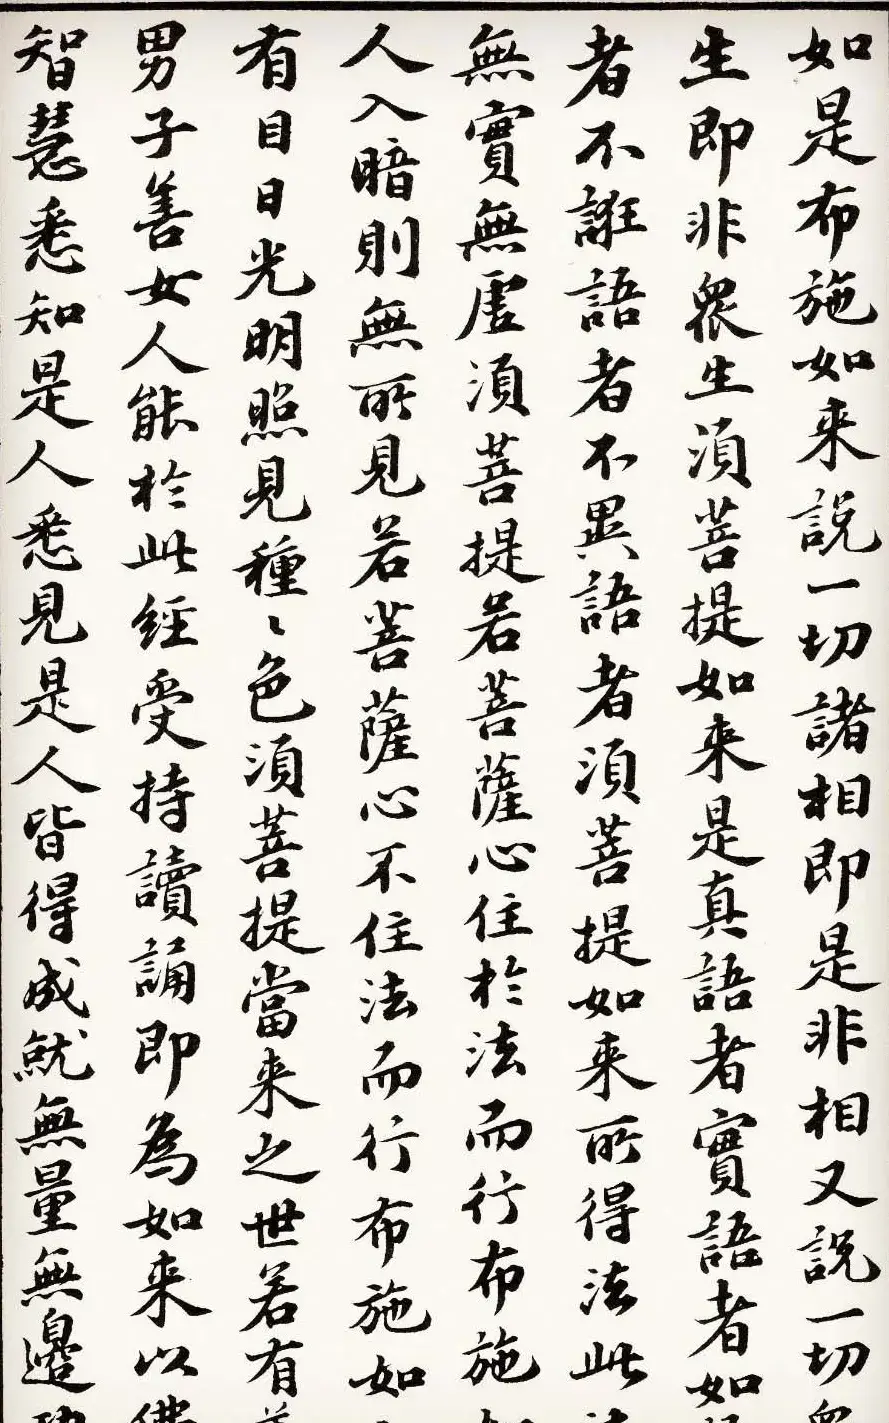 如是布施如来說一切諸相即是非相又說一切
生即非衆生須菩提如来是真語者實語者如
者不誑語者不異語者須菩提如来所得法此
無實無虛須菩提若菩薩心住於法而行布施
人入暗則無所見若菩薩心不住法而行布施如
有目日光明照見種〻色須菩提當来之世若有
男子善女人能於此經受持讀誦即為如来以佛
智慧悉知是人悉見是人皆得成就無量無邊